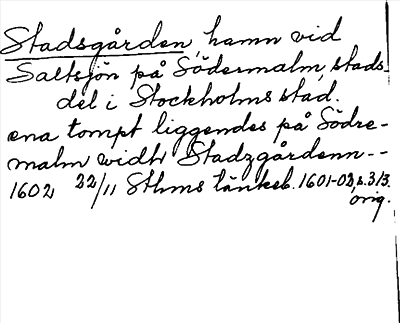 Stadsgården, hamn vid
Saltsjön på Södermalm, stads-
del i Stockholms stad.
ena tompt liggendes på Södre-
malm widh Stadzgårdenn--
1602 22/11 Sthms tänkeb. 1601-02, s. 313.
orig.